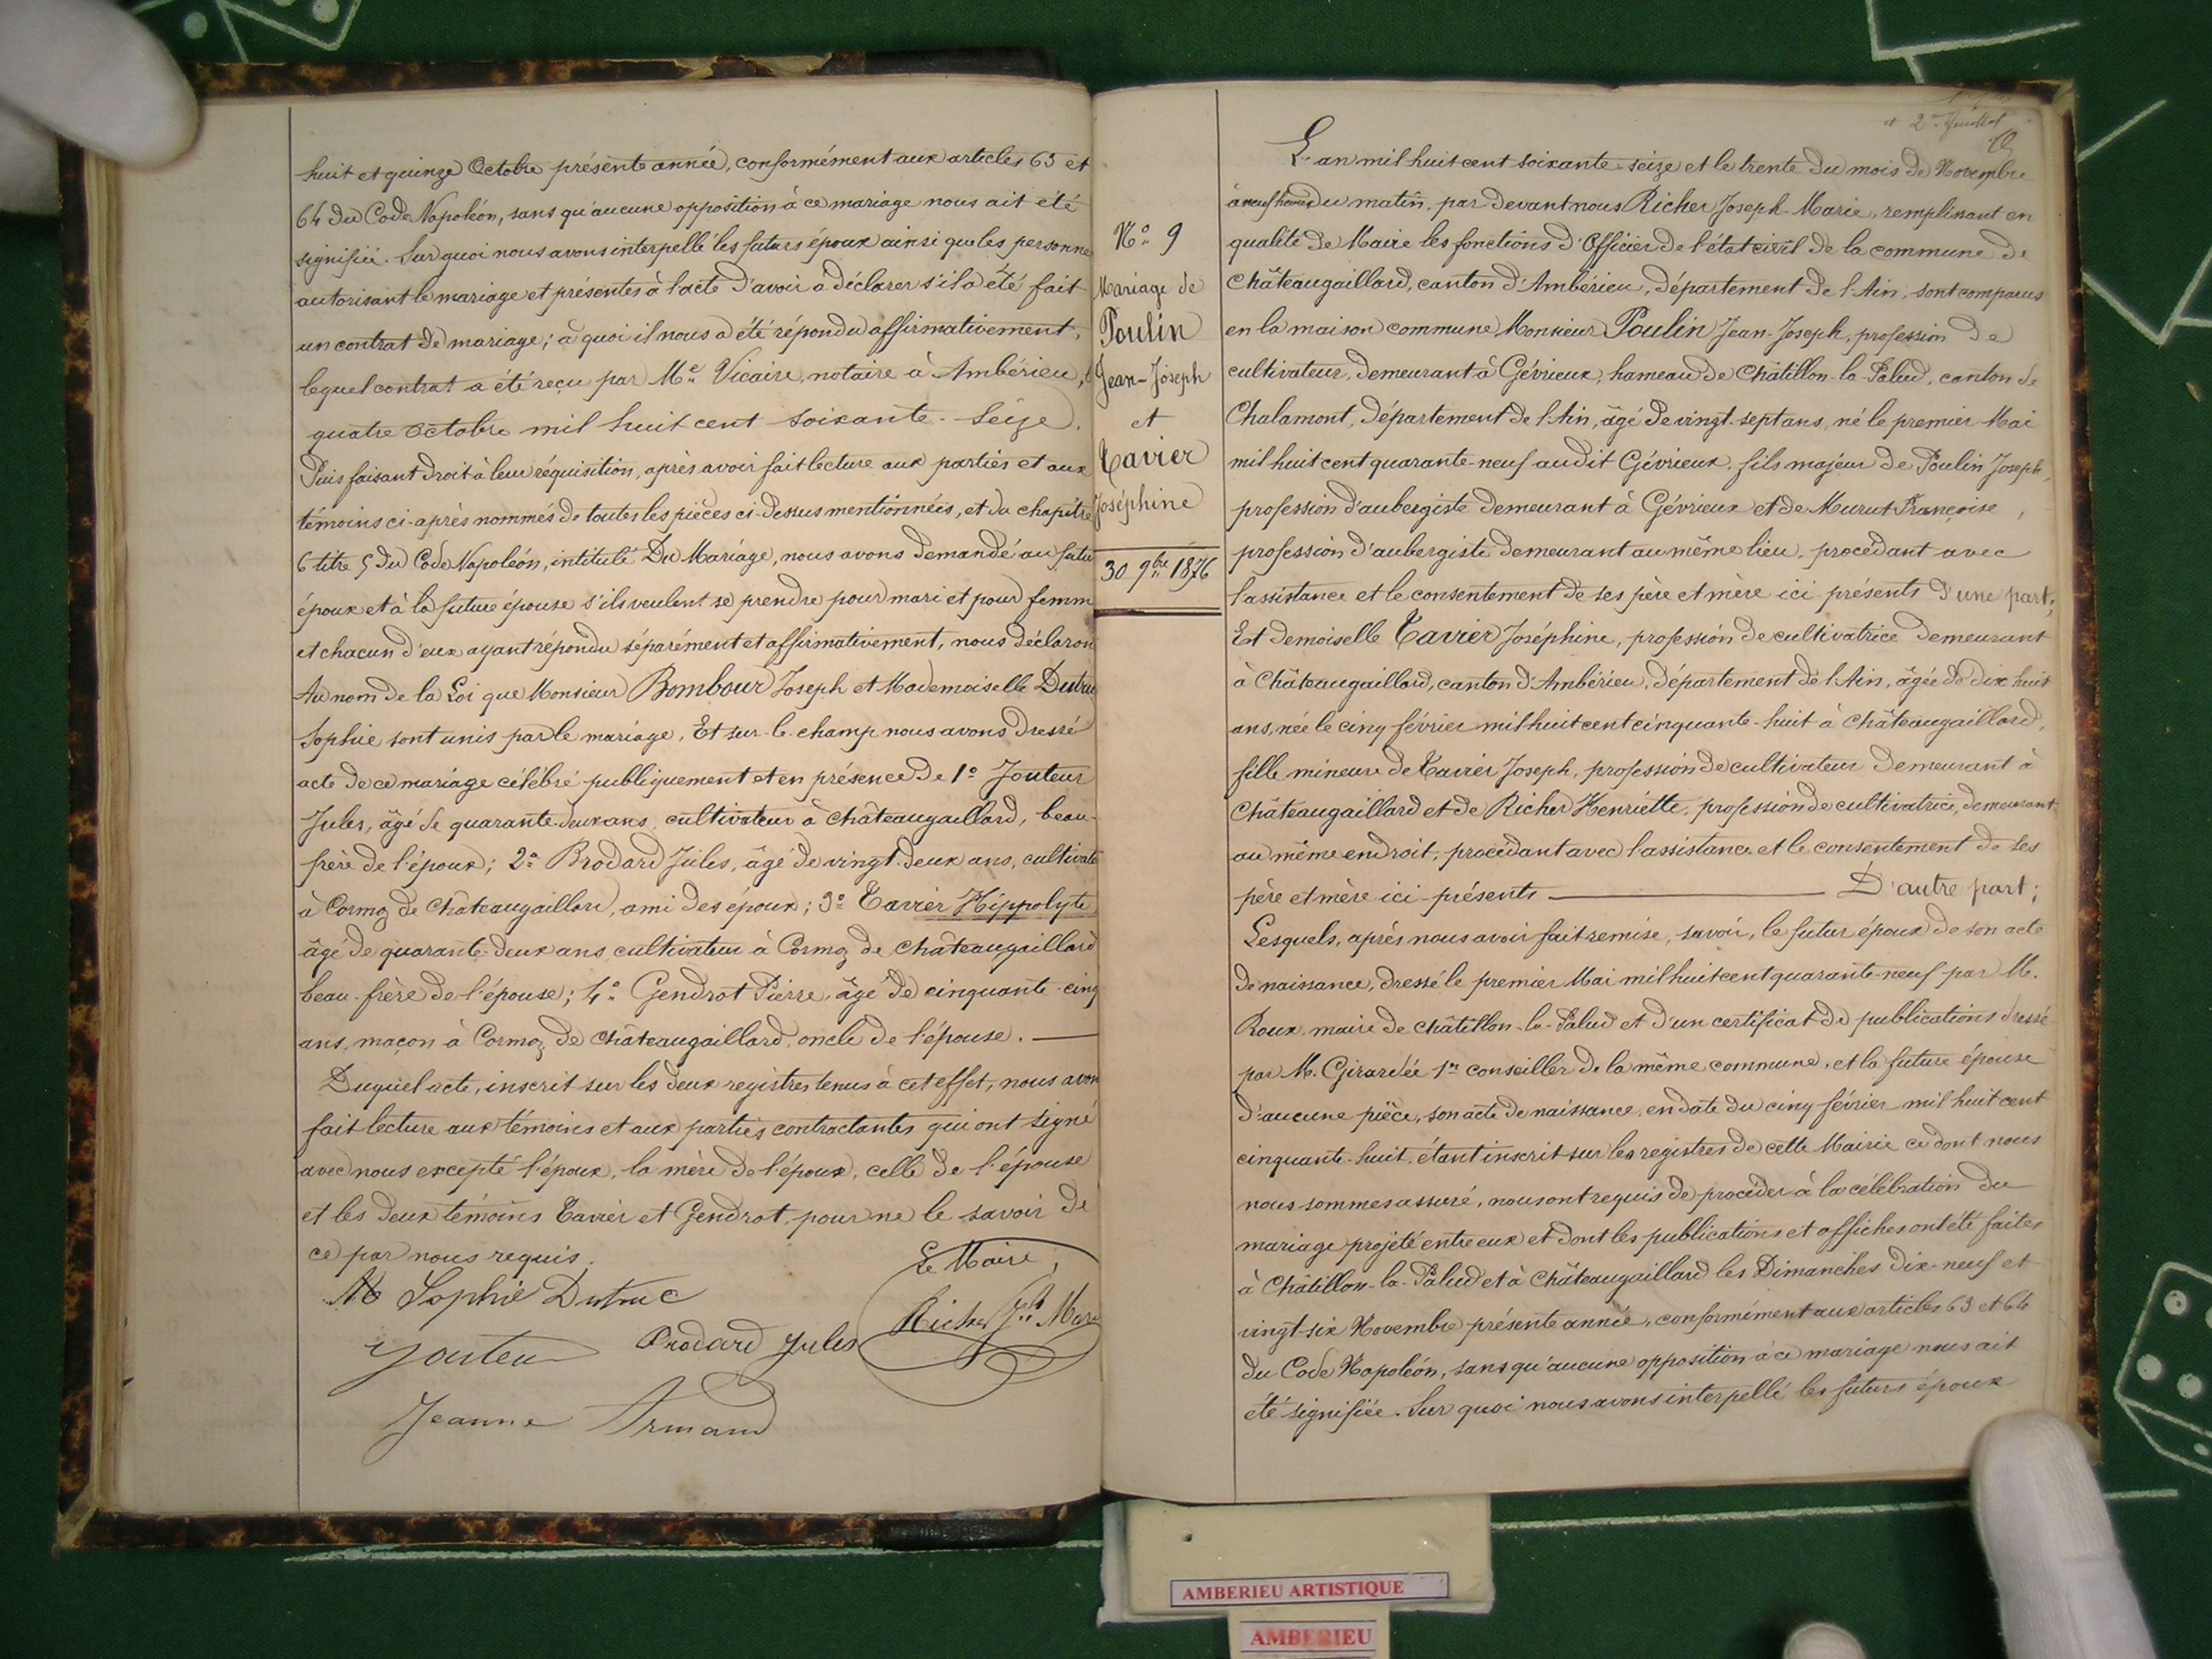 huit et quinze Octobre présente année, conformément aux articles 63 et
64 du Code Napoléon, sans qu'aucune opposition à ce mariage nous ait été
signifiée. Sur quoi nous avons interpellé les futurs époux ainsi que les personne
autorisant le mariage et présentes à l'acte d'avoir à déclarer s'il a été fait
un contrat de mariage; à quoi il nous a été répondu affirmativement,
lequel contrat a été reçu par Me Vicaire, notaire à Ambérieu,
quatre Octobre mil huit cent soixante-seize.
Puis faisant droit à leur réquisition, après avoir fait lecture aux parties et aux
témoins ci-après nommés de toutes les pièces ci-dessus mentionnées, et du chapitre
6 titre 5 du Code Napoléon, intitulé Du Mariage, nous avons demandé au futu
époux et à la future épouse s'ils veulent se prendre pour mari et pour femm
et chacun d'eux ayant répondu séparément et affirmativement, nous déclaron
Au nom de la Loi que Monsieur Bombour Joseph et Mademoiselle Dutru
Sophie sont unis par le mariage, Et sur-le-champ nous avons dressé
acte de ce mariage célébré publiquement et en présence de 1º Jouteur
Jules, âgé de quarante-deux ans, cultivateur à Châteaugaillard, beau-
frère de l'époux; 2º Brodard Jules, âgé de vingt-deux ans, cultivate
à Cormoz de Chateaugaillard, ami des époux; 3º Tavier Hippolyte
âgé de quarante-deux ans cultivateur à Cormoz de Châteaugaillard
beau-frère de l'épouse; 4º Gendrot Pierre, âgé de cinquante-cinq
ans, maçon à Cormoz de Châteaugaillard, oncle de l'épouse.
Duquel acte, inscrit sur les deux registres tenus à cet effet, nous avon
fait lecture aux témoins et aux parties contractantes qui ont signé
avec nous excepté l'époux, la mère de l'époux, celle de l'épouse
et les deux témoins Tavier et Gendrot, pour ne le savoir de
ce par nous requis.
Le Maire,
Sophie Dutruc
Richer Jph Mari
Jouteur Brodard Jules
Jeanne Armand
Nº 9
Mariage de
Poulin
Jean-Joseph
et
Tavier
Joséphine
30 9bre 1876
2e feuillet
L'an mil huit cent soixante-seize et le trente du mois de Novembre
à neuf heures du matin, par devant nous Richer Joseph-Marie, remplissant en
qualité de Maire les fonctions d'Officier de l'état civil de la commune de
Châteaugaillard, canton d'Ambérieu, département de l'Ain, sont comparus
en la maison commune Monsieur Poulin Jean-Joseph, profession de
cultivateur, demeurant à Gévrieux, hameau de Châtillon-la-Palud, canton de
Chalamont, département de l'Ain, âgé de vingt-sept ans, né le premier Mai
mil huit cent quarante-neuf audit Gévrieux, fils majeur de Poulin Joseph,
profession d'aubergiste demeurant à Gévrieux et de Murut Françoise,
profession d'aubergiste demeurant au même lieu, procédant avec
l'assistance et le consentement de ses père et mère ici présents d'une part;
Et demoiselle Tavier Joséphine, profession de cultivatrice demeurant
à Châteaugaillard, canton d'Ambérieu, département de l'Ain, âgée de dix huit
ans, née le cinq février mil huit cent cinquante-huit à Châteaugaillard,
fille mineure de Tavier Joseph, profession de cultivateur demeurant à
Châteaugaillard et de Richer Henriette, profession de cultivatrice, demeurant
au même endroit, procédant avec l'assistance et le consentement de ses
père et mère ici présents D'autre part;
Lesquels, après nous avoir fait remise, savoir, le futur époux de son acte
de naissance, dressé le premier Mai mil huit cent quarante-neuf par M.
Roux, maire de Châtillon-la-Palud et d'un certificat de publications dressé
par M. Girardée 1er conseiller de la même commune, et la future épouse
d'aucune pièce, son acte de naissance, en date du cinq février mil huit cent
cinquante-huit, étant inscrit sur les registres de cette Mairie ce dont nous
nous sommes assuré, nous ont requis de procéder à la célébration du
mariage projeté entre eux et dont les publications et affiches ont été faites
à Châtillon-la-Palud et à Châteaugaillard les Dimanches dix-neuf et
vingt-six Novembre présente année, conformément aux articles 63 et 64
du Code Napoléon, sans qu'aucune opposition à ce mariage nous ait
été signifiée. Sur quoi nous avons interpellé les futurs époux
AMBERIEU ARTISTIQUE
AMBERIEU